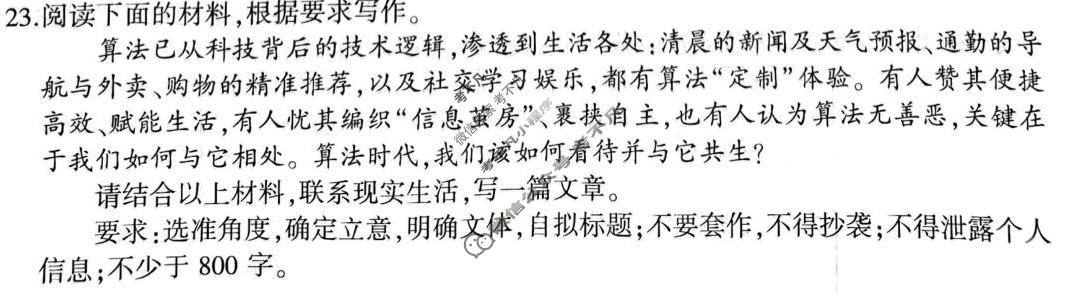 23.阅读下面的材料,根据要求写作。
算法已从科技背后的技术逻辑,渗透到生活各处:清晨的新闻及天气预报、通勤的导
航与外卖、购物的精准推荐,以及社交学习娱乐,都有算法“定制”体验。有人赞其便捷
高效、赋能生活,有人忧其编织“信息茧房”、裹挟自主,也有人认为算法无善恶,关键在
于我们如何与它相处。算法时代,我们该如何看待并与它共生?
请结合以上材料,联系现实生活,写一篇文章。
要求:选准角度,确定立意,明确文体,自拟标题;不要套作,不得抄袭;不得泄露个人
信息;不少于 800 字。